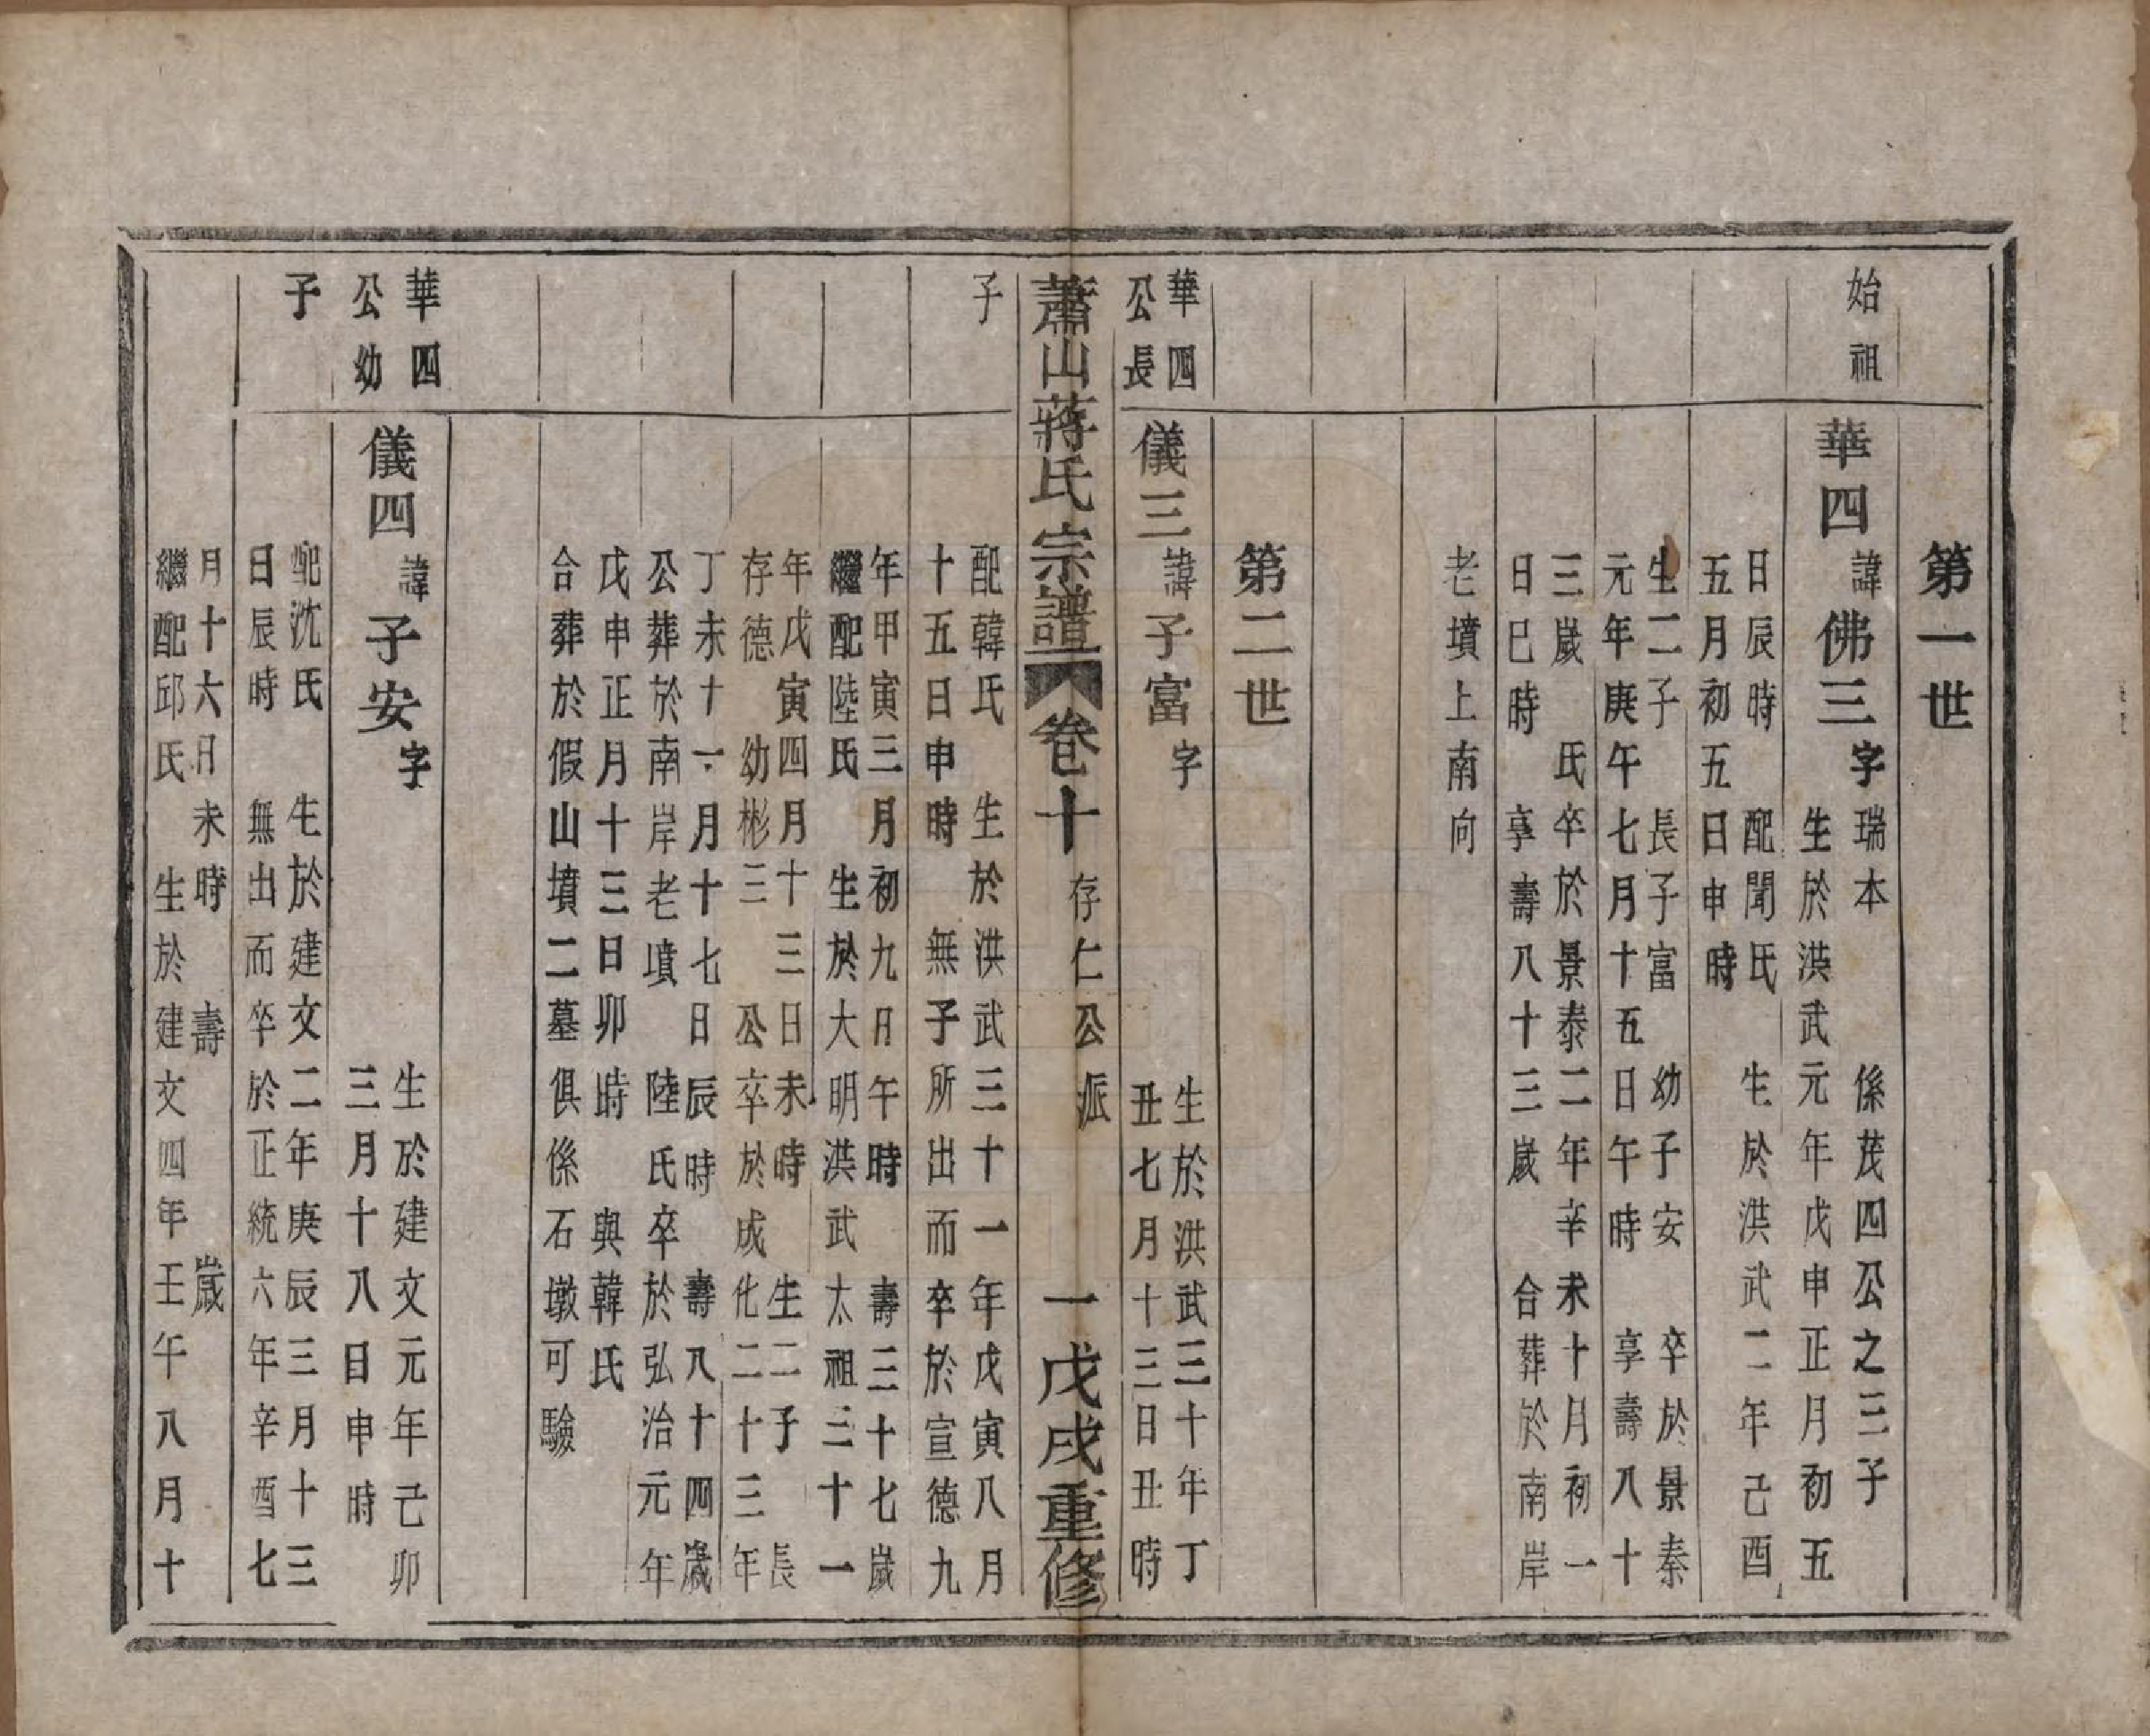 第一世
始祖
華四 諱佛三 字瑞本 係茂四公之三子
生於洪武元年戊申正月初五
日辰時 配聞氏 生於洪武二年己酉
五月初五日申時
生二子 長子富 幼子安 卒於景泰
元年庚午七月十五日午時 享壽八十
三歲 氏卒於景泰二年辛未十月初一
日巳時 享壽八十三歲 合葬於南岸
老墳上南向
第二世
華四
公長
儀三 諱子富 字
生於洪武三十年丁
丑七月十三日丑時
蕭山蔣氏宗譜 卷十 存仁公派 一 戊戌重修
子
配韓氏 生於洪武三十一年戊寅八月
十五日申時 無子所出而卒於宣德九
年甲寅三月初九日午時 壽三十七歲
繼配陸氏 生於大明洪武太祖三十一
年戊寅四月十三日未時 生二子 長
存德 幼彬三 公卒於成化二十三年
丁未十一月十七日辰時 壽八十四歲
公葬於南岸老墳 陸氏卒於弘治元年
戊申正月十三日卯時 與韓氏
合葬於假山墳二墓俱係石墩可驗
華四
公幼
子
儀四 諱子安 字
生於建文元年己卯
三月十八日申時
配沈氏 生於建文二年庚辰三月十三
日辰時 無出而卒於正統六年辛酉七
月十六日未時 壽 歲
繼配邱氏 生於建文四年壬午八月十